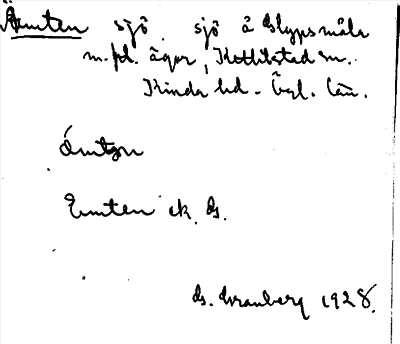 Ämten sjö. sjö å Slypsmåla
m. fl. ägor, Kättilstad sn.
Kinda hd. Ögl. län.
Ämtən
Emten ek. G.
G. Granberg 1928.